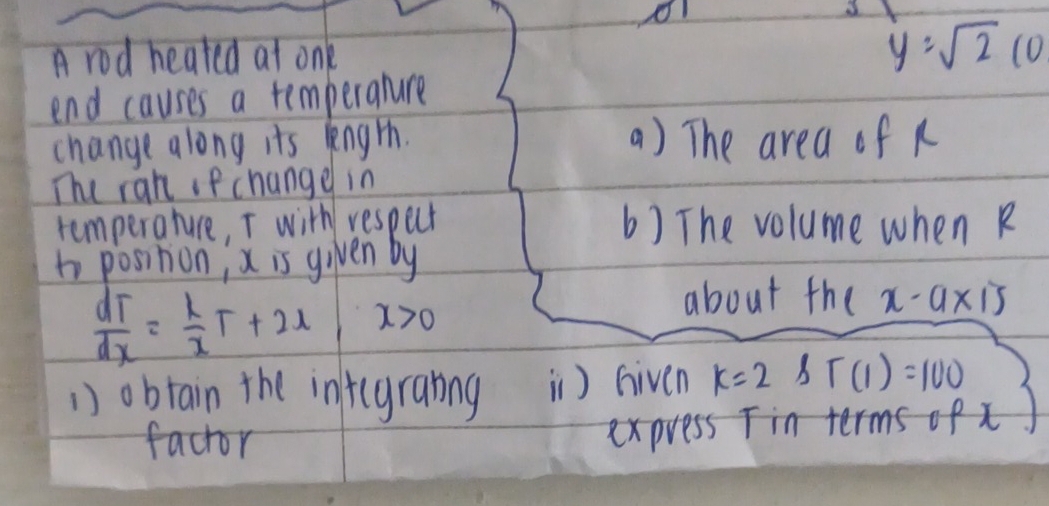 A rod heated at one
end causes a temperature
change along its length.
The rate of change in
temperature, T with respect
to position, x is given by
dT/dx = k/x T + 2x , x>0
i) obtain the integrating
factor
ii) Given K=2 & T(1)=100
express T in terms of x
y=√2 (0
a) The area of R
b) The volume when R
about the x-axis